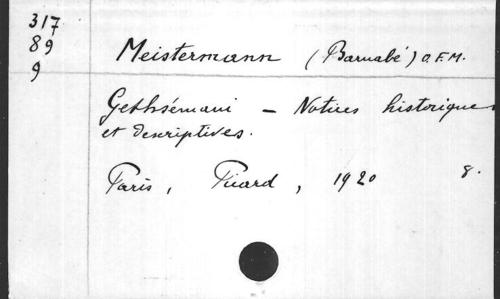 317
89
9
Meistermann (Barnabé) O.F.M.
Gethsémani - Notices historiques
et descriptives.
Paris, Picard, 1920 8.